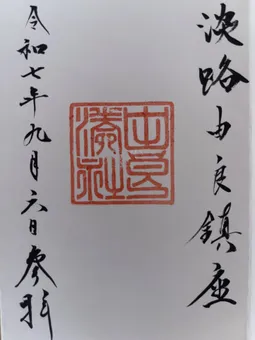 淡路由良鎮座
由良
湊社
令和七年九月六日参拝